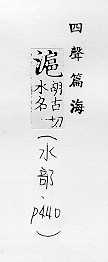 四聲篇海
滬胡古切
水名
(水部.p440)